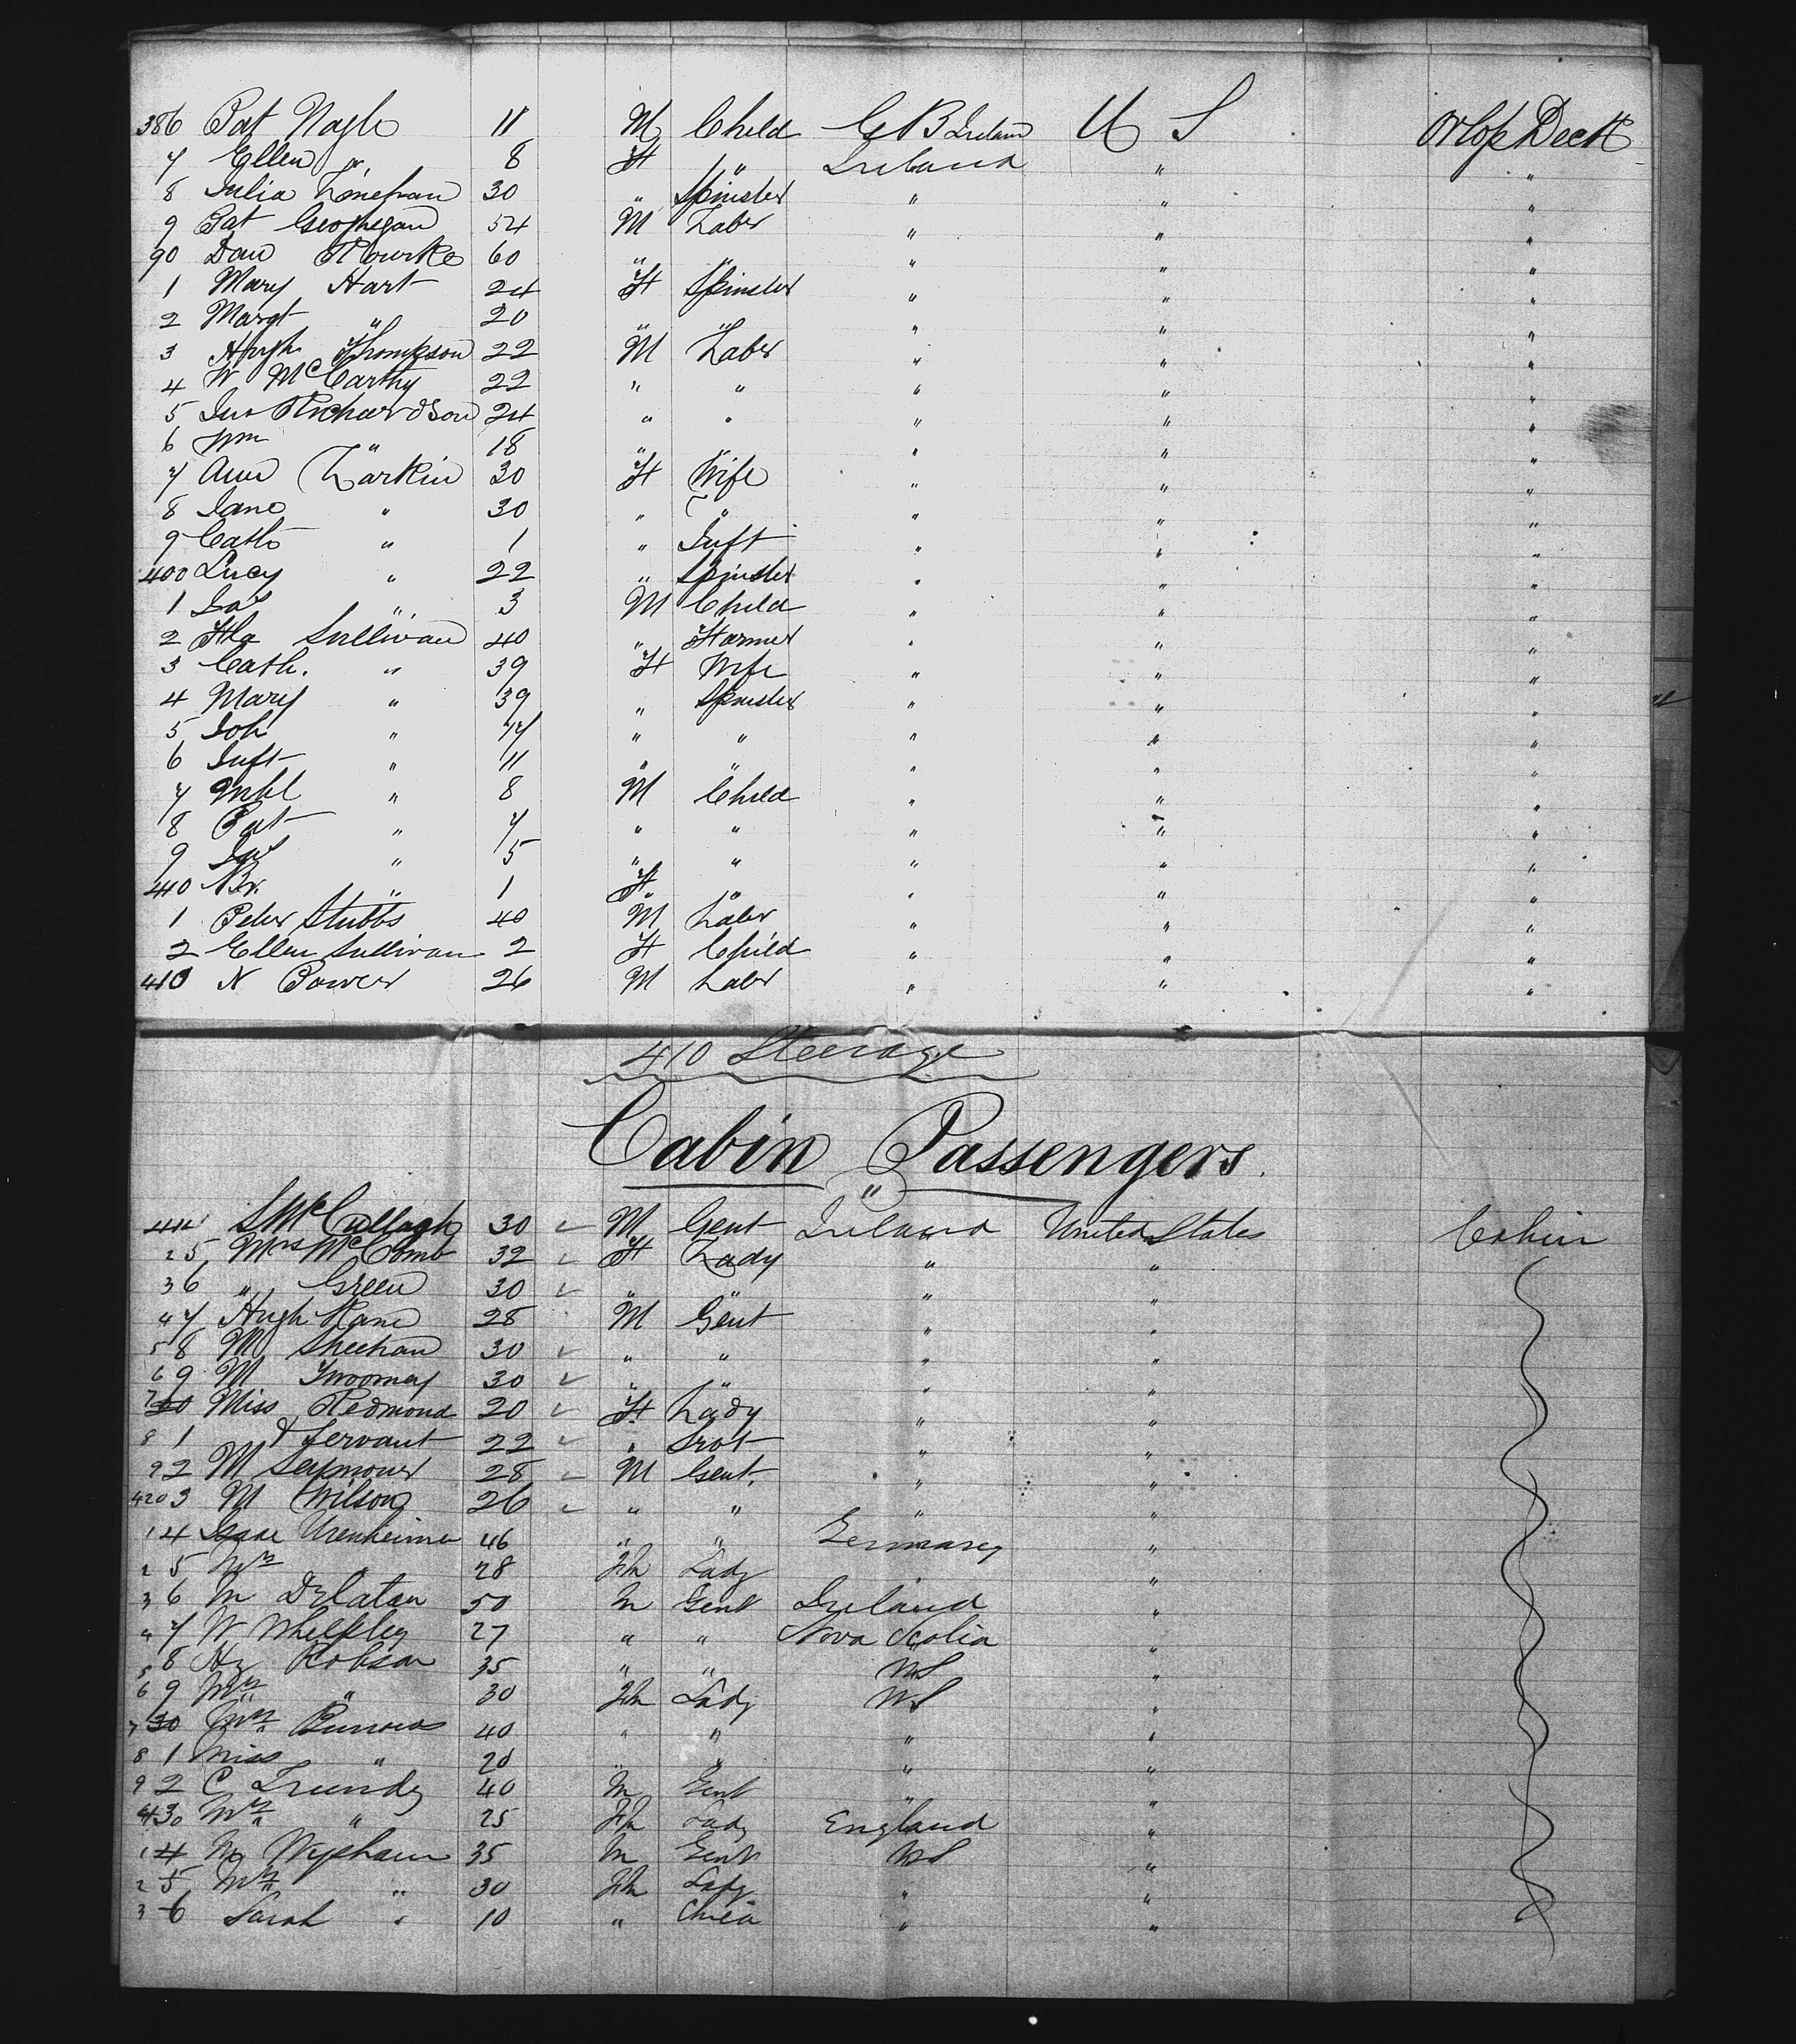 386 Pat Nagle 11 M Child G B Ireland U S Orlop Deck
7 Ellen " 8 F " Ireland " "
8 Julia Linehan 30 " Spinster " " "
9 Pat Geoghegan 54 M Labr " " "
90 Dan O'Rourke 60 " " " " "
1 Mary Hart 24 F Spinster " " "
2 Margt " 20 " " " " "
3 Hugh Thompson 22 M Labr " " "
4 W McCarthy 22 " " " " "
5 Jno Richardson 24 " " " " "
6 Wm " 18 " " " " "
7 Ann Larkin 30 F Wife " " "
8 Jane " 30 " " " " "
9 Cath " 1 " Inft " " "
400 Lucy " 22 " Spinster " " "
1 Jas " 3 M Child " " "
2 Sullivan 40 " Farmer " " "
3 Cath. " 39 F Wife " " "
4 Mary " 39 " Spinster " " "
5 Joh " " " " " "
6 Inft " 11 " " " " "
7 Mchl " 8 M Child " " "
8 Pat " 7 " " " " "
9 Jas " 5 " " " " "
410 " 1 F " " " "
1 Peter Stubbs 40 M Labr " " "
2 Ellen Sullivan 2 F Child " " "
410 N Power 26 M Labr " " "
410 Steerage
Cabin Passengers
"
S McCullagh 30 M Gent Ireland United States Cabin
2 5 Mrs McComb 32 F Lady " "
3 6 " Green 30 " " " "
4 7 Hugh Kane 28 M Gent " "
5 8 M Sheehan 30 " " " "
6 9 M Twoomey 30 " " " "
7 20 Miss Redmond 20 F Lady " "
8 1 & Servant 22 " Srvt " "
9 2 M Seymour 28 M Gent. " "
420 3 M Wilson 26 " " " "
1 4 Isaac Urenheimer 46 " " Germany "
2 5 Mrs 28 Fm Lady " "
3 6 M 50 M Gent Ireland "
4 7 W Whelpley 27 " " Nova Scotia "
5 8 Hy Robson 35 " " US "
6 9 Mrs " 30 Fm Lady US "
7 30 Mrs Burrows 40 " " " "
8 1 Miss " 20 " " " "
9 2 C Trundy 40 M Gent " "
430 Mrs " 25 Fm Lady England "
1 4 M Wypham 35 M Gent US "
2 5 Mrs " 30 Fm Lady " "
3 6 Sarah " 10 " Child " "